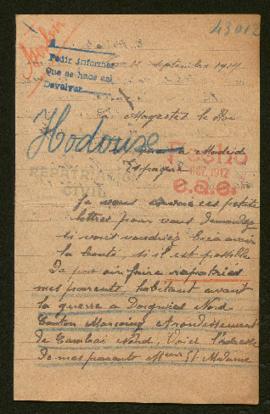 43012
A
Pedir informes
Que se hace así
Devolver
septembre 1917
Sa Majesté le Roi
Hodouse
Madrid
Espagne
Fecho
1917
c.a.e.
REPATRIA
CIVIL
Je vous envoie ces petite
lettres pour vous demander
si vous voudriez bien avoir
la bonté, si il est possible
De pouvoir faire rapatrier
mes parents, habitant avant
la guerre a Doignies Nord
Canton Marcoing Arrondissement
de Cambrai Nord, Voici l'adresse
De mes parents Mr et Madame